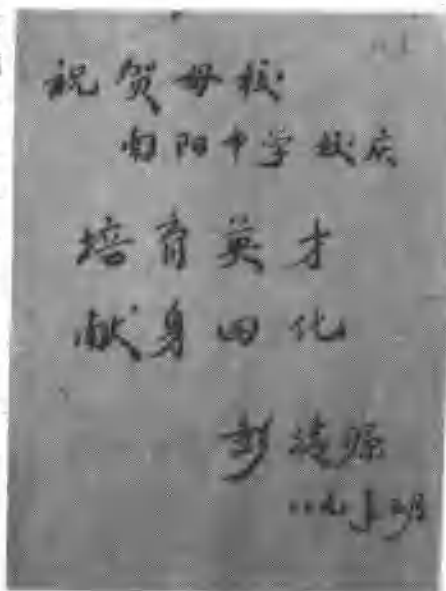 祝贺母校
南阳中学校庆
培育英才
献身四化
彭